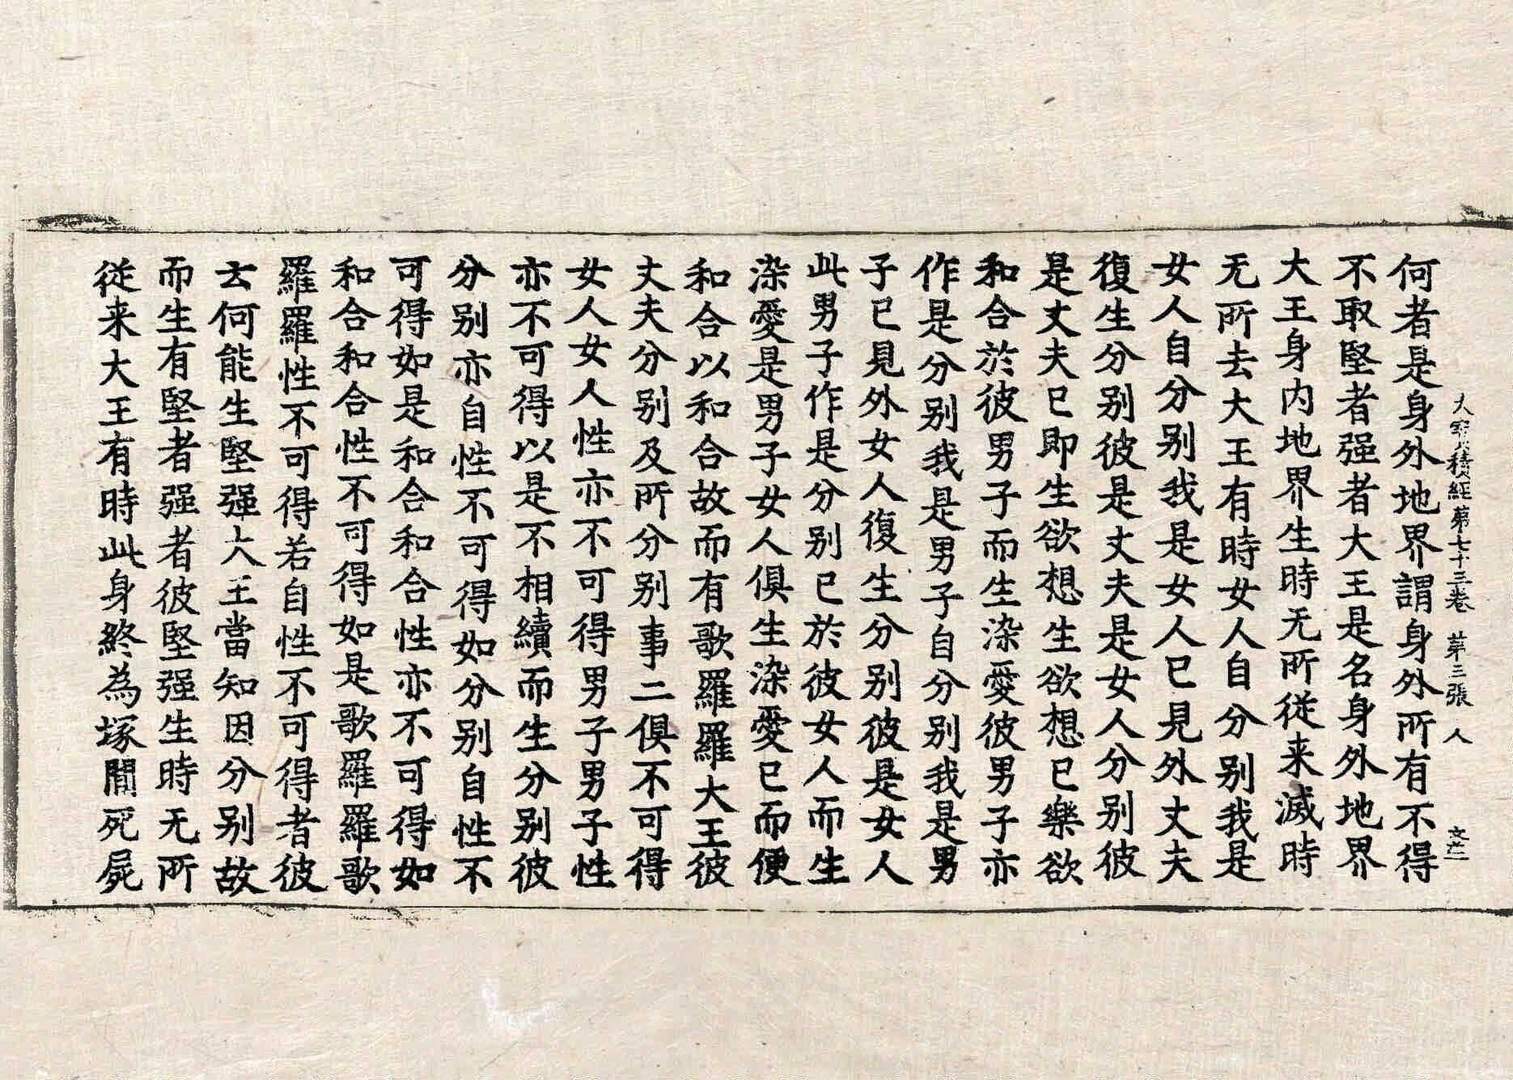 大寶積經第七十三卷 第三張 人
何者是身外地界謂身外所有不得
不取堅者强者大王是名身外地界
大王身内地界生時无所従来滅時
无所去大王有時女人自分别我是
女人自分别我是女人已見外丈夫
復生分别彼是丈夫是女人分别彼
是丈夫已即生欲想生欲想已樂欲
和合於彼男子而生染愛彼男子亦
作是分别我是男子自分别我是男
子已見外女人復生分别彼是女人
此男子作是分别已於彼女人而生
染愛是男子女人俱生染愛已而便
和合以和合故而有歌羅羅大王彼
丈夫分别及所分别事二俱不可得
女人女人性亦不可得男子男子性
亦不可得以是不相續而生分别彼
分别亦自性不可得如分别自性不
可得如是和合和合性亦不可得如
和合和合性不可得如是歌羅羅歌
羅羅性不可得若自性不可得者彼
云何能生堅强大王當知因分别故
而生有堅者强者彼堅强生時无所
従来大王有時此身終為塚閒死屍